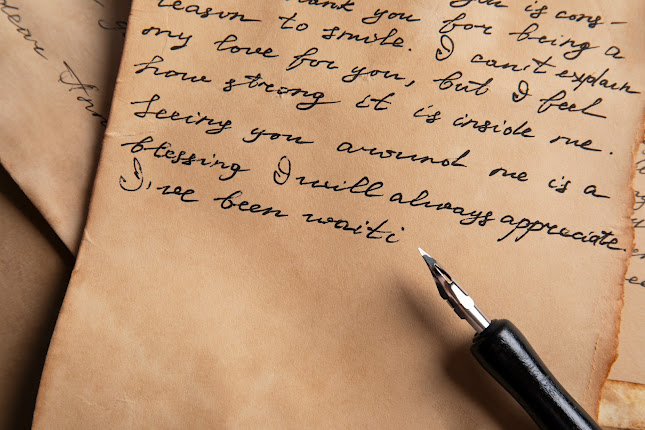 you is cons-
you for being a
reason to smile. I can't explain
my love for you, but I feel
how strong it is inside me.
Seeing you around me is a
blessing I will always appreciate.
I've been waiti